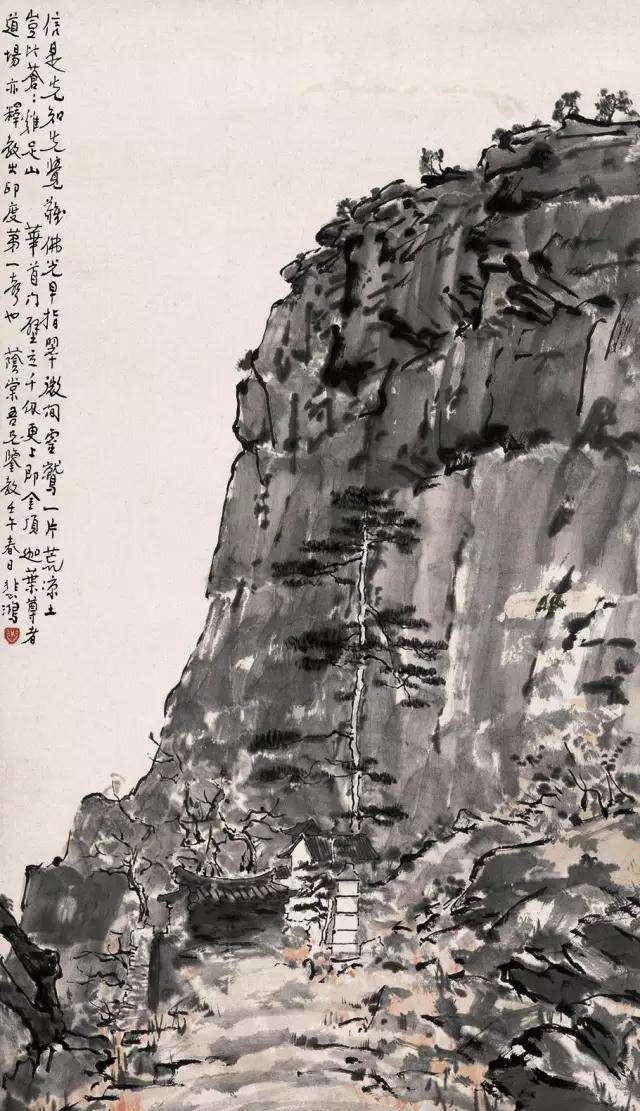 信是先知先覺艱佛光早指翠微間靈鷲一片荒凉土
豈比蒼〻雞足山 華首門壁立千仞更上即金頂迦葉尊者
道場亦釋教出印度第一聲也 蔭棠吾兄鑒教 壬午春日 悲鴻